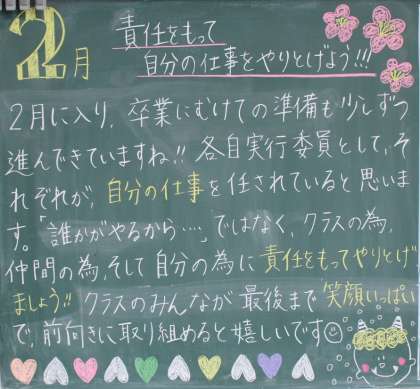 2月
責任をもって
自分の仕事をやりとげよう!!!
2月に入り、卒業にむけての準備も少しずつ
進んできていますね!! 各自実行委員として、そ
れぞれが、自分の仕事を任されていると思いま
す。「誰かがやるから…」ではなく、クラスの為、
仲間の為、そして自分の為に責任をもってやりとげ
ましょう!! クラスのみんなが最後まで笑顔いっぱい
で、前向きに取り組めると嬉しいです☺